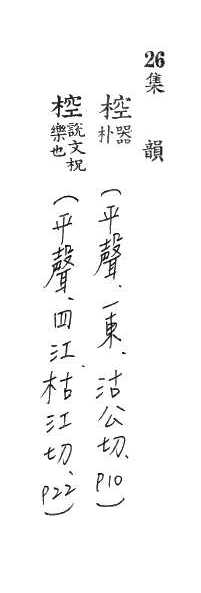 26集韻
椌器朴(平聲、一東、沽公切、P10)
椌說文柷樂也(平聲、四江、枯江切、P22)